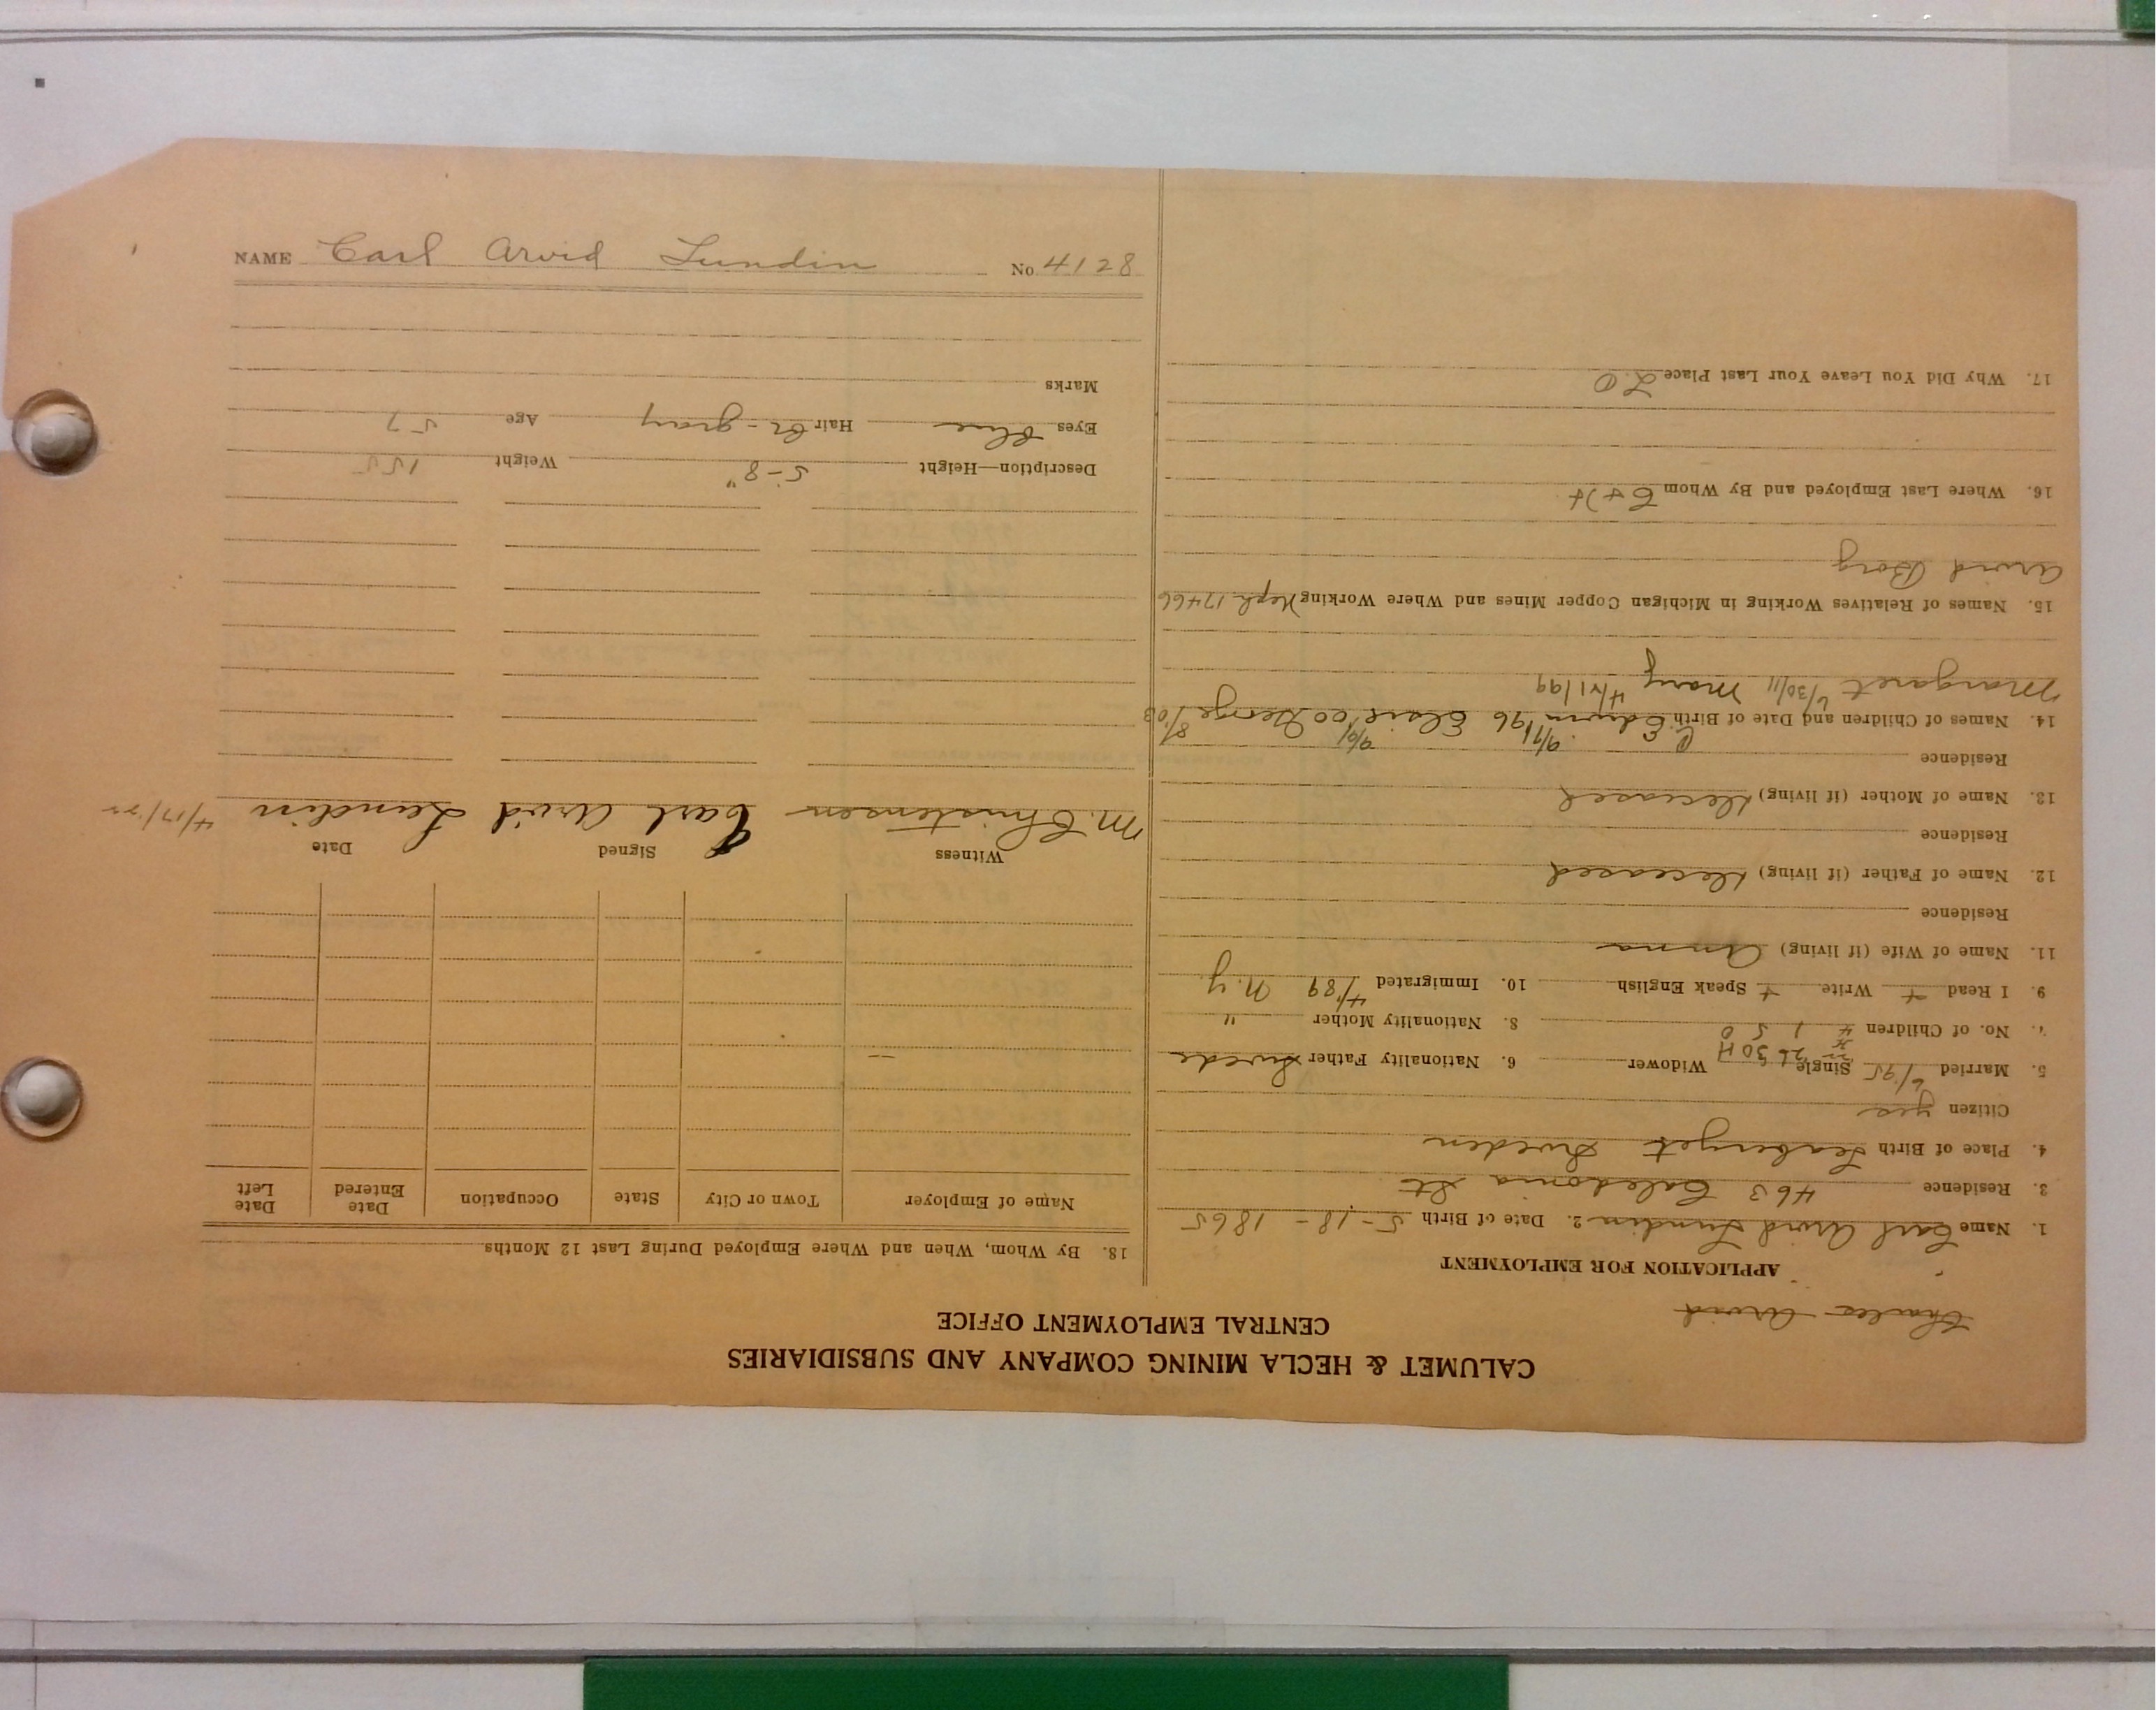 CALUMET & HECLA MINING COMPANY AND SUBSIDIARIES
CENTRAL EMPLOYMENT OFFICE
Charles Arvid
APPLICATION FOR EMPLOYMENT
1. Name Carl Arvid Lundin 2. Date of Birth 5-18-1865
3. Residence 463 Caledonia St
4. Place of Birth Sweden
Citizen yes
5. Married 6/95 Single Widower 6. Nationality Father Swede
7. No. of Children 4 1 5 0 8. Nationality Mother "
9. I Read + Write + Speak English 10. Immigrated 4/89 N.Y.
11. Name of Wife (if living) Anna
Residence
12. Name of Father (if living) Deceased
Residence
13. Name of Mother (if living) Deceased
Residence
14. Names of Children and Date of Birth C. Edwin 9/7/96 Elsie 9/9/00 George 8/03
Margaret 6/30/11 Mary 4/21/99
15. Names of Relatives Working in Michigan Copper Mines and Where Working Neph. 17466
Arvid Borg
16. Where Last Employed and By Whom C+H
17. Why Did You Leave Your Last Place L.O
18. By Whom, When and Where Employed During Last 12 Months
Name of Employer Town or City State Occupation Date Entered Date Left
Witness Signed Date
M. Christensen Carl Arvid Lundin 4/17/22
Description—Height 5-8" Weight 155
Eyes blue Hair Br-gray Age 57
Marks
NAME Carl Arvid Lundin No 4128